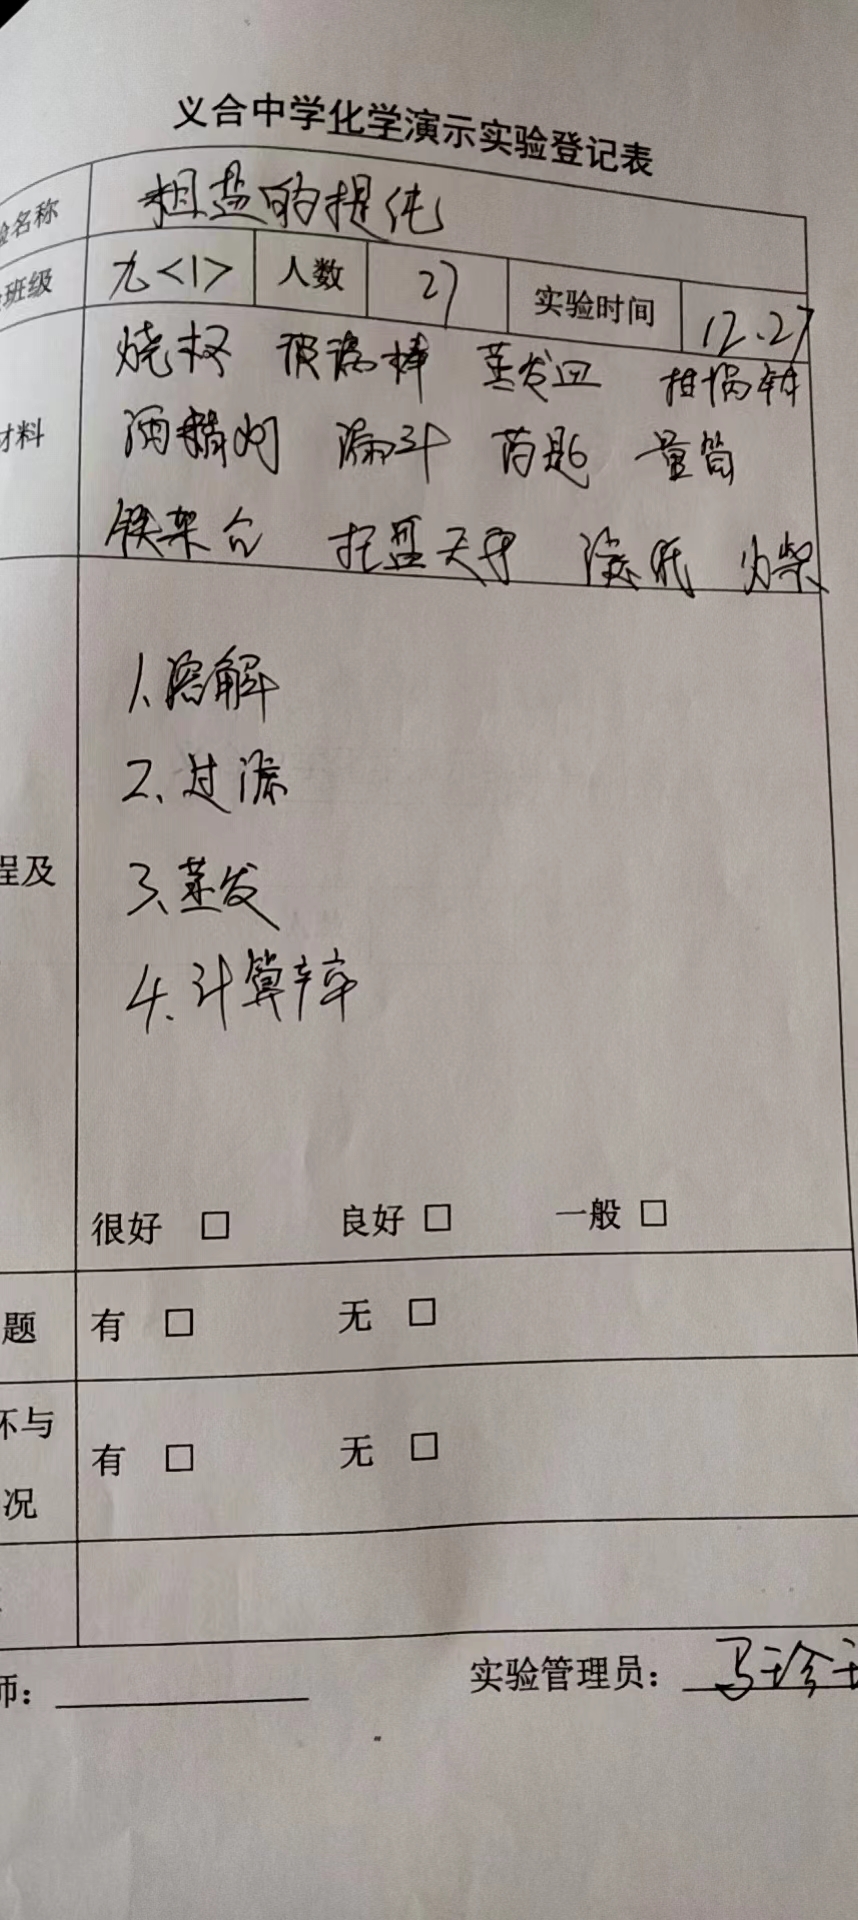 义合中学化学演示实验登记表
验名称 粗盐的提纯
班级 九<1> 人数 27 实验时间 12.27
烧杯 玻璃棒 蒸发皿 坩埚钳
材料 酒精灯 漏斗 药匙 量筒
铁架台 托盘天平 滤纸 火柴
1.溶解
2、过滤
程及 3、蒸发
4、计算产率
很好 □ 良好 □ 一般 □
题 有 □ 无 □
坏与
有 □ 无 □
况
师： 实验管理员：马珍